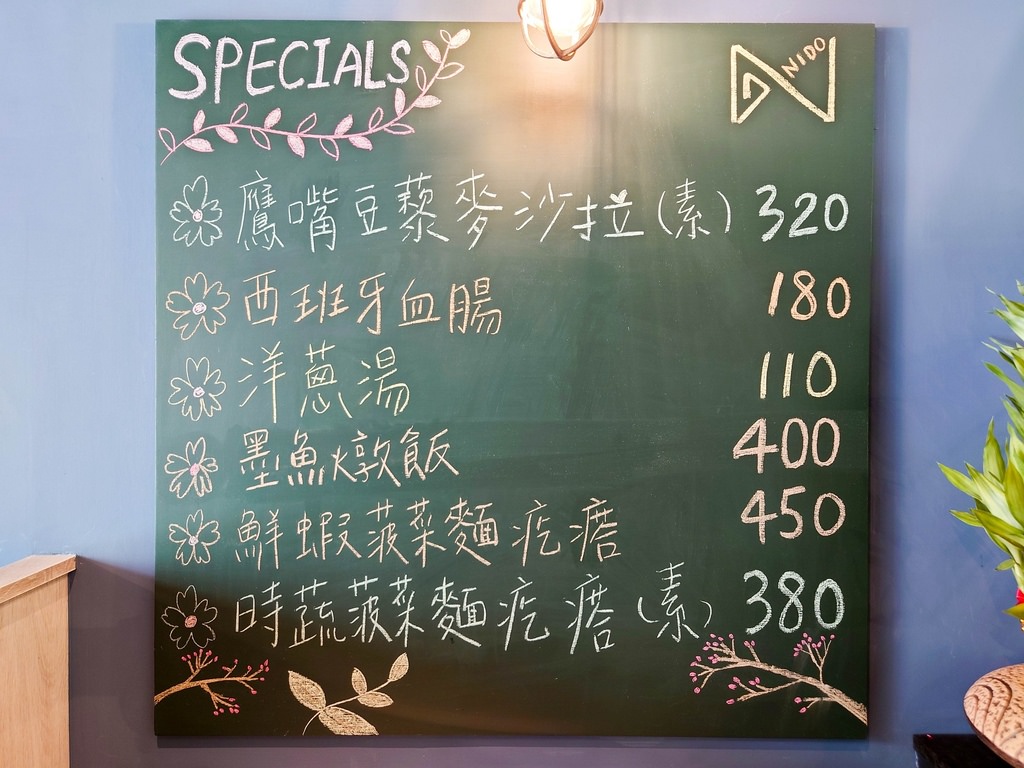 SPECIALS
NIDO
鷹嘴豆藜麥沙拉(素) 320
西班牙血腸 180
洋蔥湯 110
墨魚燉飯 400
鮮蝦菠菜麵疙瘩 450
時蔬菠菜麵疙瘩(素) 380